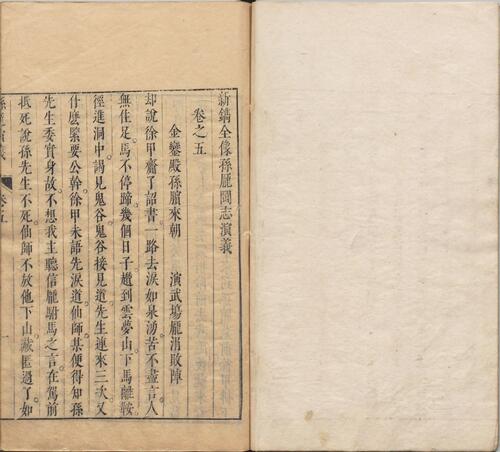 新鐫全像孫龐鬪志演義
卷之五
金鑾殿孫臏來朝 演武塲龐涓敗陣
却說徐甲齎了詔書一路去淚如泉湧苦不盡言人
無住足馬不停蹄幾個日子趲到雲夢山下馬離鞍
徑進洞中謁見鬼谷鬼谷接見道先生連來三次又
什麽緊要公幹徐甲未語先淚道仙師某便得知孫
先生委實身故不想我主聽信龐駙馬之言在駕前
抵死說孫先生不死仙師不放他下山藏匿過了如
孫龐演義 卷五 一